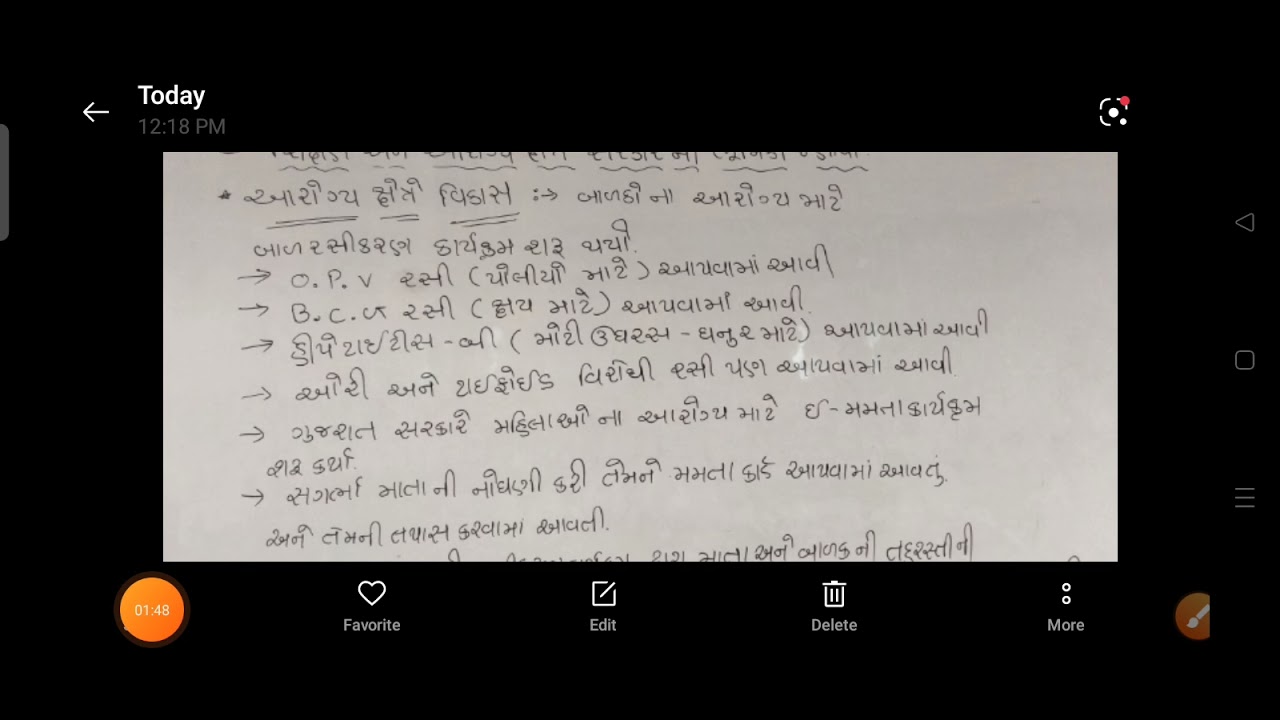 Today
12:18 PM
શિક્ષણ અને આરોગ્ય ક્ષેત્રે સરકારની ભૂમિકા
* આરોગ્ય ક્ષેત્રે વિકાસ :→ બાળકોના આરોગ્ય માટે
બાળ રસીકરણ કાર્યક્રમ શરૂ થયો.
→ O.P.V રસી (પોલીયો માટે) આપવામાં આવી
→ B.C.G રસી (ક્ષય માટે) આપવામાં આવી.
→ હીપેટાઈટીસ-બી (મોટી ઉધરસ - ધનુર માટે) આપવામાં આવી
→ ઓરી અને ટાઈફોઈડ વિરોધી રસી પણ આપવામાં આવી.
→ ગુજરાત સરકારે મહિલાઓના આરોગ્ય માટે ઈ-મમતા કાર્યક્રમ
શરૂ કર્યો.
→ સગર્ભા માતાની નોંધણી કરી તેમને મમતા કાર્ડ આપવામાં આવતું.
અને તેમની તપાસ કરવામાં આવતી.
માતા અને બાળકની તંદુરસ્તીની
01:48
Favorite
Edit
Delete
More